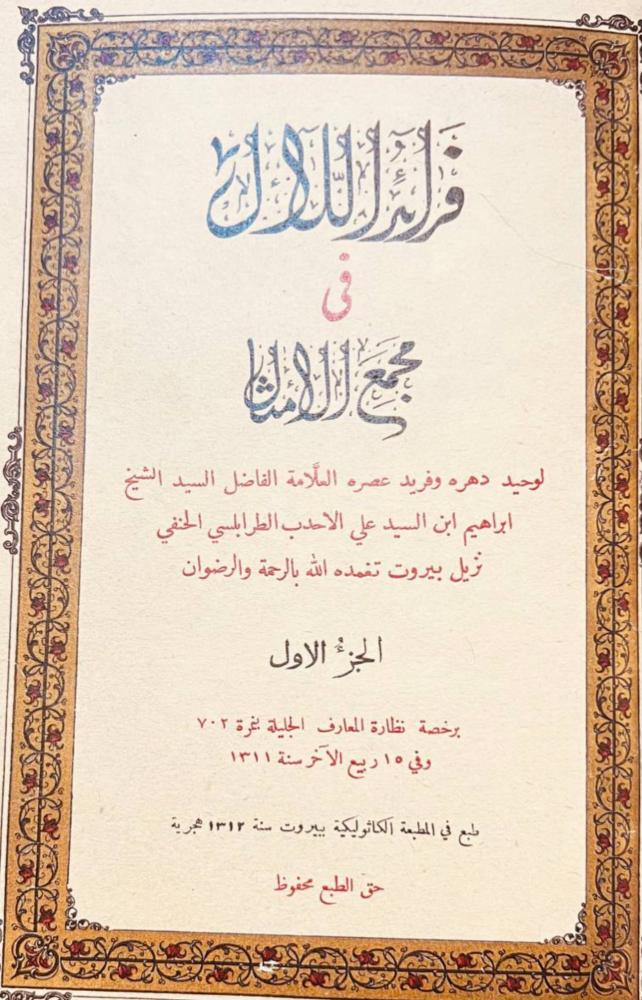 فَرَائِدُ اللَّآلِ
فى
مَجْمَعِ الأَمْثَالِ
لوحيد دهره وفريد عصره العلَّامة الفاضل السيد الشيخ
ابراهيم ابن السيد علي الاحدب الطرابلسي الحنفي
نزيل بيروت تغمده الله بالرحمة والرضوان
الجزءُ الاول
برخصة نظارة المعارف الجليلة بنمرة ٧٠٢
وفي ١٥ ربيع الآخر سنة ١٣١١
طبع في المطبعة الكاثوليكية ببيروت سنة ١٣١٢ هجرية
حق الطبع محفوظ